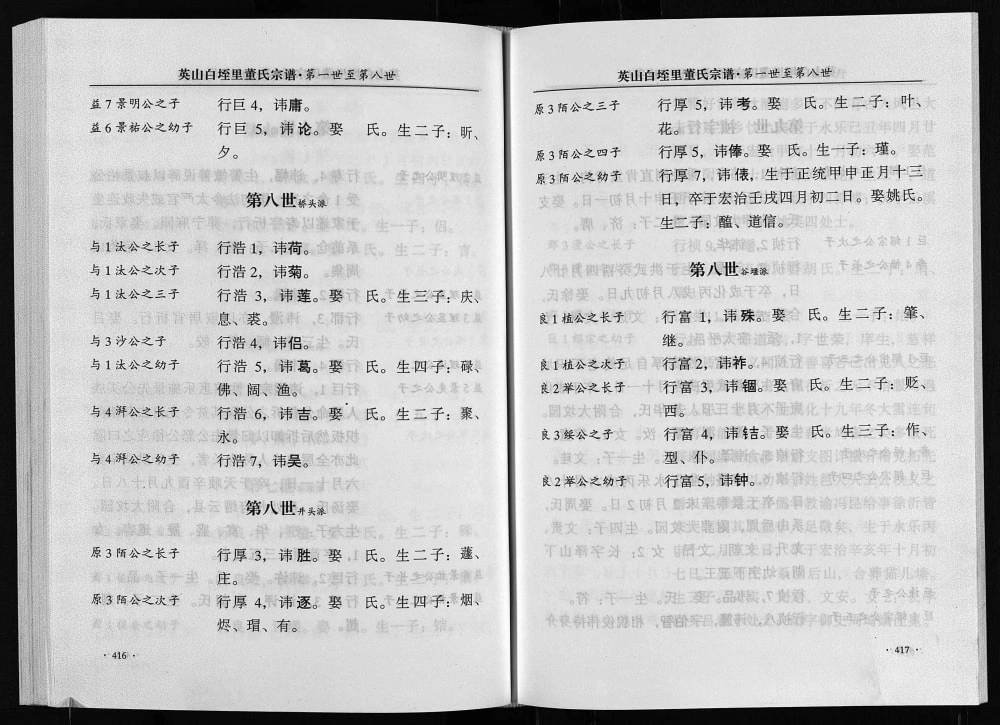 英山白垤里董氏宗谱·第一世至第八世
益7景明公之子 行巨4，讳庸。
益6景祐公之幼子 行巨5，讳论。娶 氏。生二子；昕、
夕。
第八世桥头派
与1汰公之长子 行浩1，讳荷。
与1汰公之次子 行浩2，讳菊。
与1汰公之三子 行浩3，讳莲。娶 氏。生三子；庆、
息、裘。
与3沙公之子 行浩4，讳侣。
与1汰公之幼子 行浩5，讳葛。娶 氏。生四子；碌、
佛、阔、渔。
与4湃公之长子 行浩6，讳吉。娶 氏。生二子；聚、
永。
与4湃公之幼子 行浩7，讳吴。
第八世井头派
原3陌公之长子 行厚3，讳胜。娶 氏。生二子；蘧、
庄。
原3陌公之次子 行厚4，讳逐。娶 氏。生四子；烟、
烬、瑁、有。
·416·
英山白垤里董氏宗谱·第一世至第八世
原3陌公之三子 行厚5，讳考。娶 氏。生二子；叶、
花。
原3陌公之四子 行厚5，讳俸。娶 氏。生一子；瑾。
原3陌公之幼子 行厚7，讳俵，生于正统甲申正月十三
日，卒于宏治壬戌四月初二日。娶姚氏。
生二子；醢、道信。
第八世谷堰派
良1植公之长子 行富1，讳殊。娶 氏。生二子；肇、
继。
良1植公之次子 行富2，讳祚。
良2举公之长子 行富3，讳锢。娶 氏。生二子；贬、
西。
良3绥公之子 行富4，讳钴。娶 氏。生三子；作、
型、仆。
良2举公之幼子 行富5，讳钟。
·417·